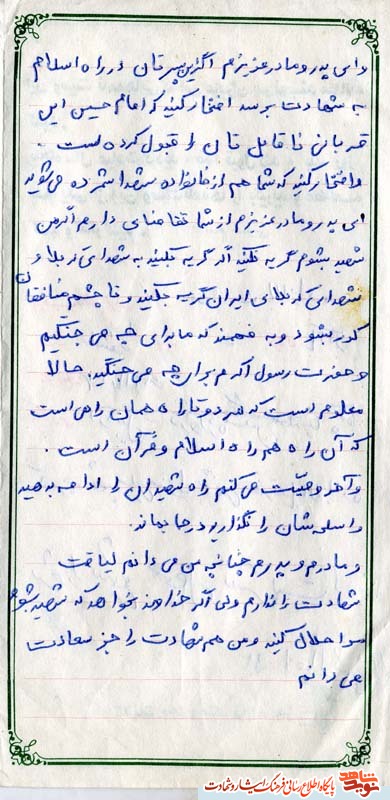 وای پدر و مادر عزیزم اگر این پسرتان در راه اسلام
به شهادت برسد افتخار کنید که امام حسین این
قربانی ناقابل تان را قبول کرده است .
وافتخار کنید که شما هم از خانواده شهدا شمرده می شوید
ای پدر و مادر عزیزم از شما تقاضای دارم اگر من
شهید بشوم گریه نکنید اگر گریه بکنید به شهدای کربلا و
شهدای کربلای ایران گریه بکنید و تا چشم منافقان
کور بشود و به فهمند که ما برای چه می جنگیم
و حضرت رسول اکرم برای چه می جنگید. حالا
معلوم است که هر دو تا راه همان راهی است
که آن راه هم راه اسلام و قرآن است .
و آخر وصیت می کنم راه شهیدان را ادامه بدهید
واسلحه شان را نگذارید در جا بماند.
و مادرم و پدرم چنانچه من می دانم لیاقت
شهادت را ندارم ولی اگر خداوند بخواهد که شهید بشوم
مرا حلال کنید و من هم شهادت را جز سعادت
می دانم
نوید شاهد
پایگاه اطلاع رسانی فرهنگ ایثار و شهادت